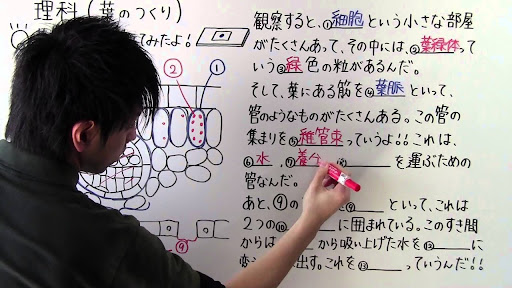 理科(葉のつくり)
てみたよ!
② ①
⑨
観察すると、①細胞という小さな部屋
がたくさんあって、その中には、②葉緑体って
いう③緑色の粒があるんだ。
そして、葉にある筋を④葉脈といって、
管のようなものがたくさんある。この管の
集まりを⑤維管束っていうよ!!これは、
⑥水、⑦養分、⑧ を運ぶための
管なんだ。
あと、⑨の を⑨ といって、これは
2つの⑩ に囲まれている。このすき間
からは から吸い上げた水を⑫ に
出す。これを⑬ っていうんだ!!